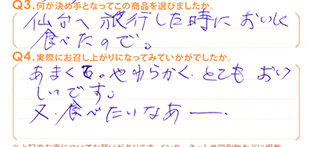 Q3.何が決め手となってこの商品を選びましたか。
仙台へ旅行した時においしく
食べたので。
Q4.実際にお召し上がりになってみていかがでしたか。
あまくる。やわらかく、とても おい
しいです。
又、食べたいなあー。